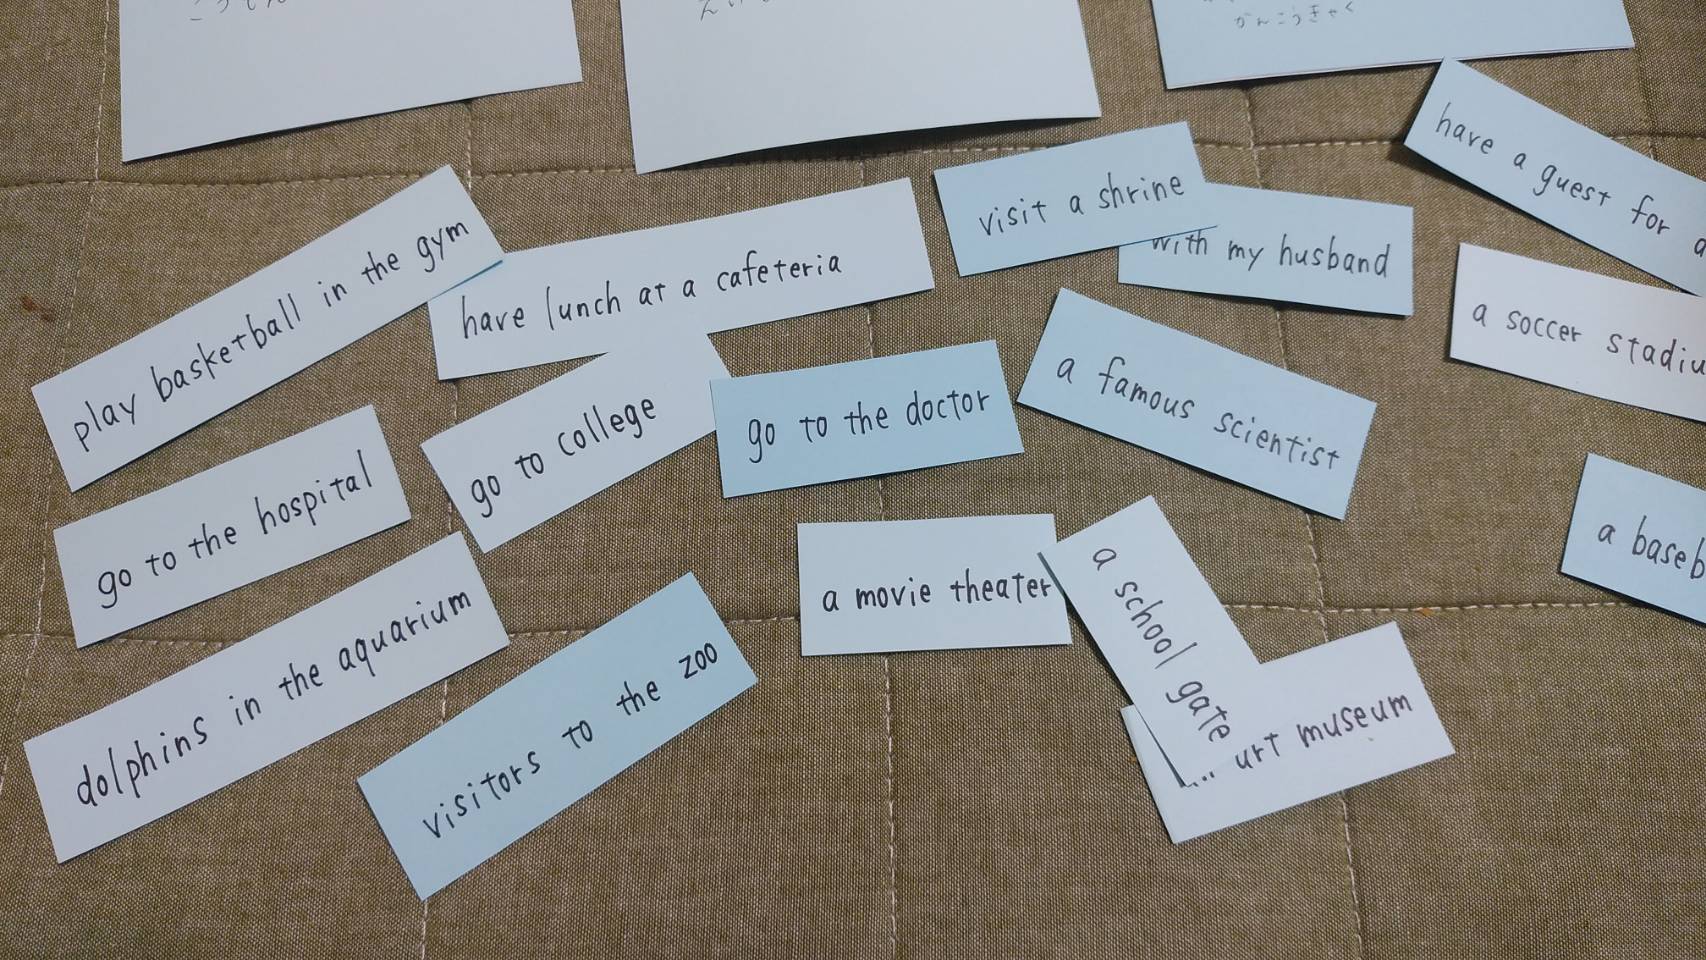 がんこうきゃく
have a guest for
visit a shrine
with my husband
play basketball in the gym
have lunch at a cafeteria
a soccer
a famous scientist
go to college
go to the doctor
go to the hospital
a
a movie theater
a school gate
dolphins in the aquarium
visitors to the zoo
museum